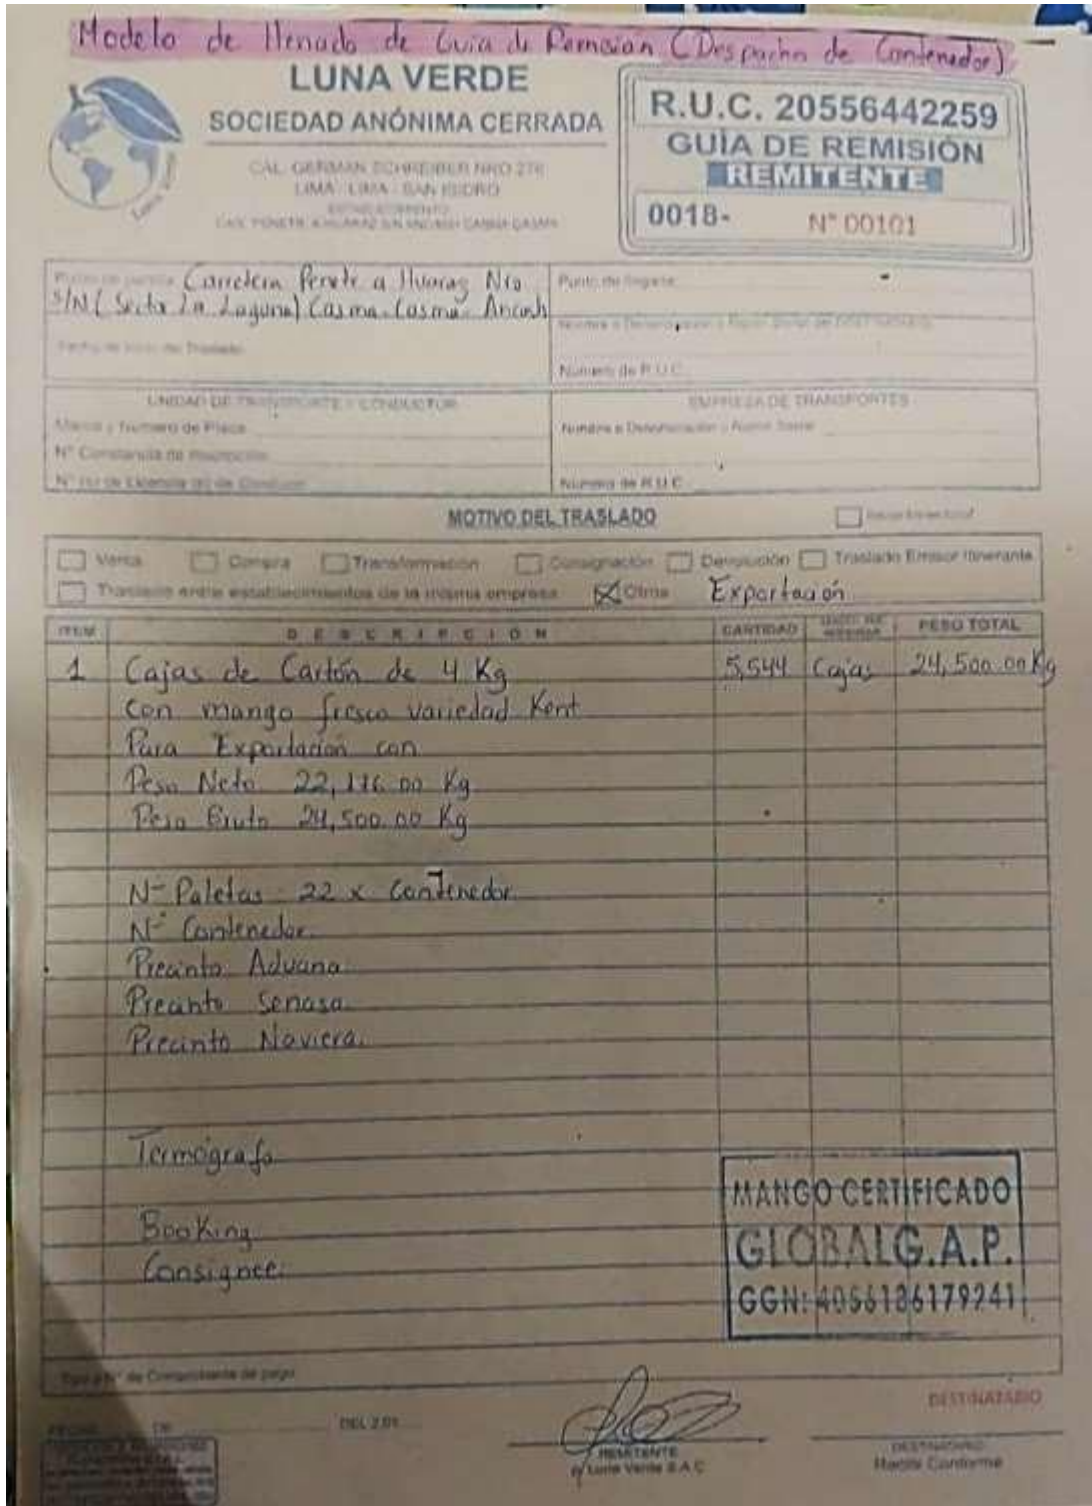 Modelo de llenado de Guia de Remosion (Despacho de Contenedor)
LUNA VERDE
SOCIEDAD ANÓNIMA CERRADA
CAL. GERMAN SCHREIBER NRO 276
LIMA - LIMA - SAN ISIDRO
R.U.C. 20556442259
GUÍA DE REMISIÓN
REMITENTE
0018-
N° 00101
Punto de partida Carretera Penetr. a Huaraz Nro
S/N (Secto La Laguna) Casma. Casma. Ancash
Punto de llegada
Fecha de Inicio del Traslado
Número de R.U.C.
UNIDAD DE TRANSPORTE Y CONDUCTOR
EMPRESA DE TRANSPORTES
Marca y Número de Placa
Nombre o Denominación o Razón Social
N° Constancia de Inscripción
Número de R.U.C.
MOTIVO DEL TRASLADO
Venta
Compra
Transformación
Consignación
Devolución
Traslado Emisor Itinerante
Traslado entre establecimientos de la misma empresa
Otros Exportación
ITEM DESCRIPCIÓN CANTIDAD PESO TOTAL
1 Cajas de Cartón de 4 Kg 5,544 Cajas 24,500.00 Kg
con mango fresco variedad Kent
Para Exportación con
Peso Neto 22,176.00 Kg
Peso Bruto 24,500.00 Kg
N° Paletas 22 x Contenedor
N° Contenedor
Precinto Aduana
Precinto Senasa
Precinto Naviera.
Termografo
Booking
Consignee:
MANGO CERTIFICADO
GLOBALG.A.P.
GGN: 4056186179241
Tipo y N° de Comprobante de pago
DESTINATARIO
DEL 2.01
REMITENTE
p. Luna Verde S.A.C.
DESTINATARIO
Recibí Conforme